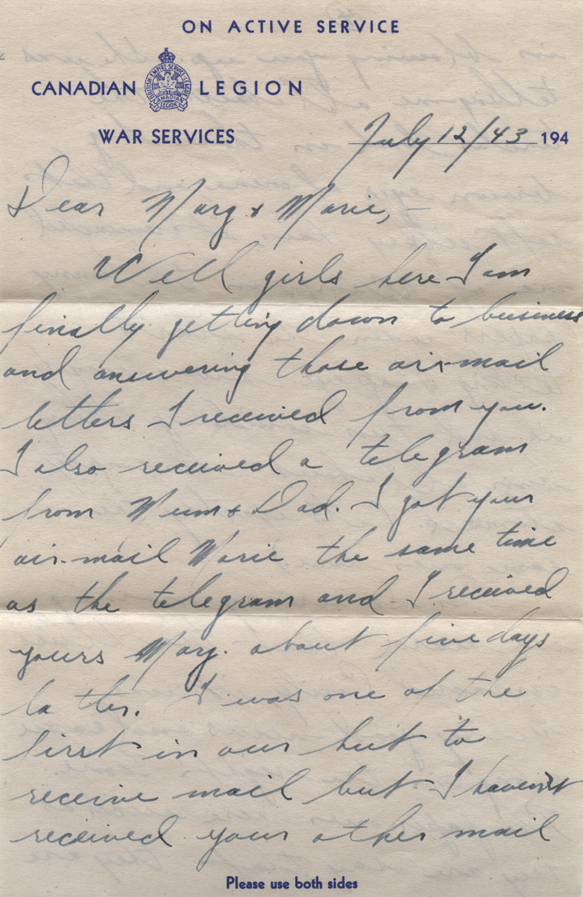 ON ACTIVE SERVICE
CANADIAN LEGION
WAR SERVICES
July 12/43 194
Dear Mary & Marie,
Well girls here I am
finally getting down to business
and answering those air-mail
letters I received from you.
I also received a telegram
from Mum & Dad. I got your
air-mail Marie the same time
as the telegram and I received
yours Mary. about five days
later. I was one of the
first in our hut to
receive mail but I haven't
received your other mail
Please use both sides